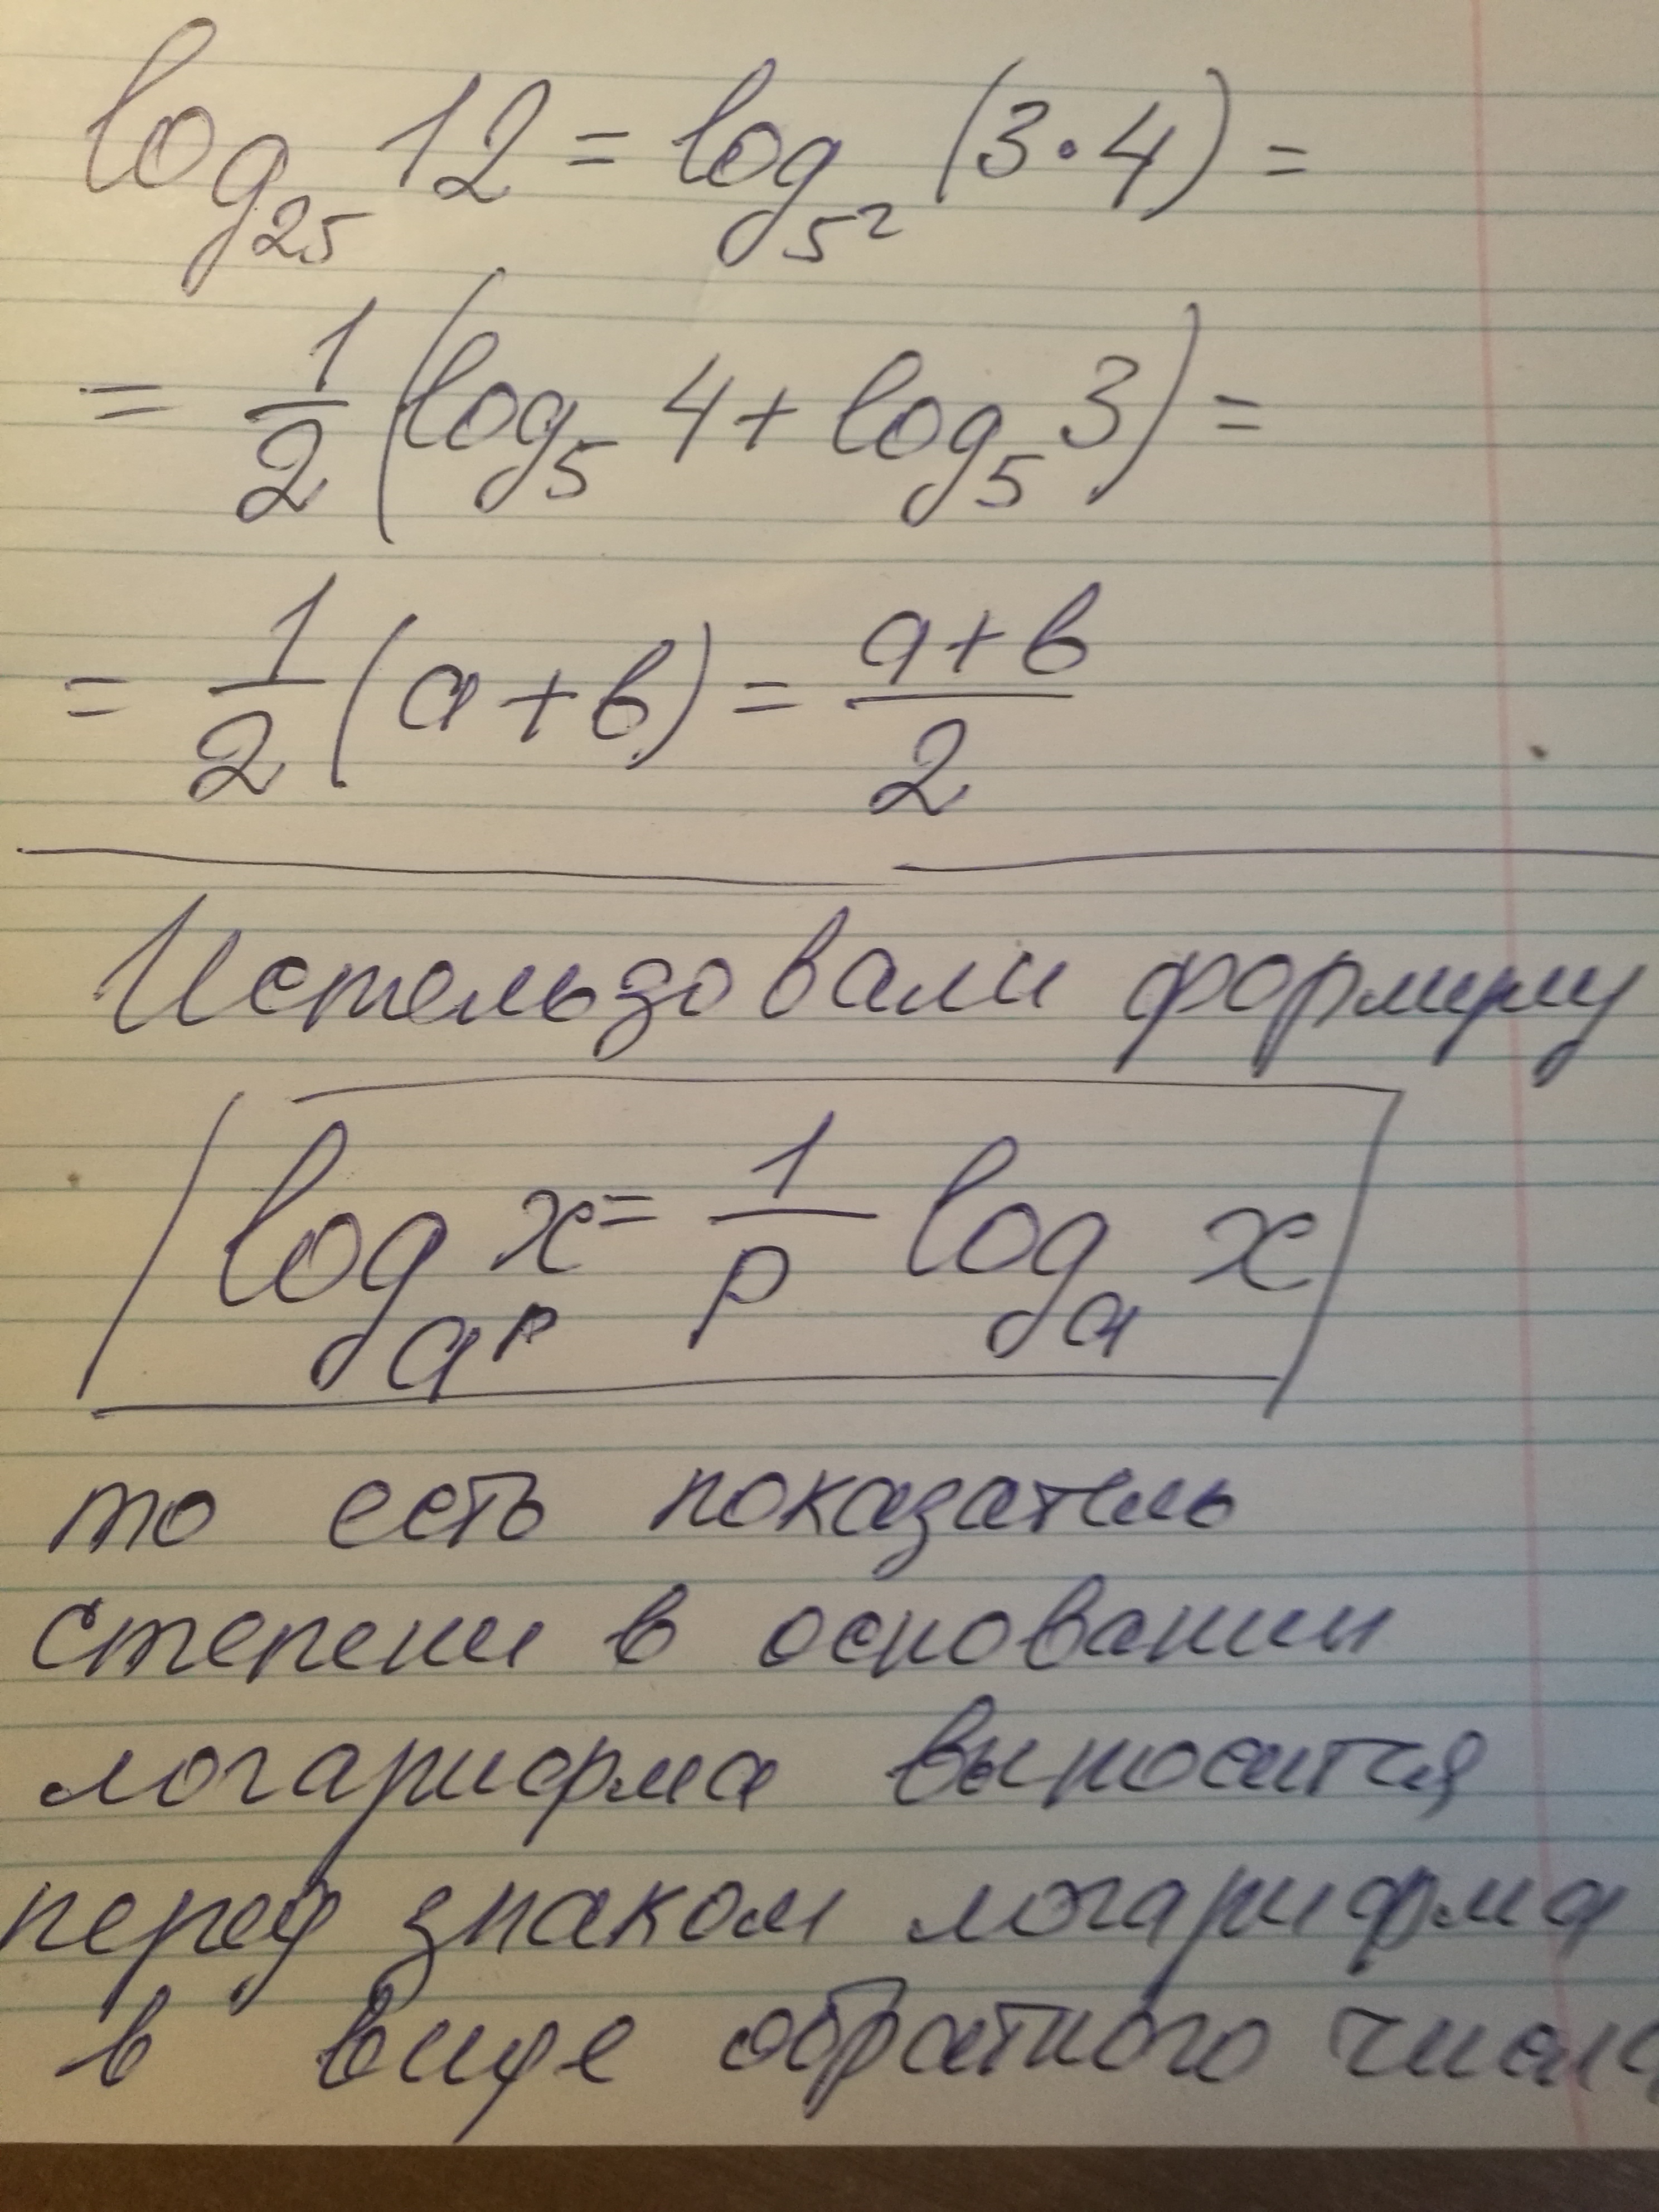 log₂₅ 12 = log₅² (3·4) =
= 1/2 (log₅ 4 + log₅ 3) =
= 1/2 (a + в) = (a + в)/2
Использовали формулу
log_{a^p} x = 1/p log_a x
то есть показатель
степени в основании
логарифма выносится
перед знаком логарифма
в виде обратного числа